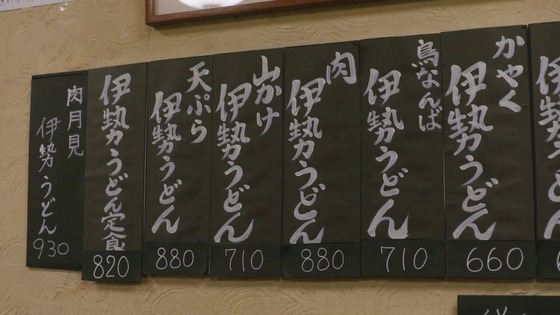 かやく
伊勢うどん
660
鳥なんば
伊勢うどん
710
肉
伊勢うどん
880
山かけ
伊勢うどん
710
天ぷら
伊勢うどん
880
伊勢うどん定食
820
肉月見
伊勢うどん
930